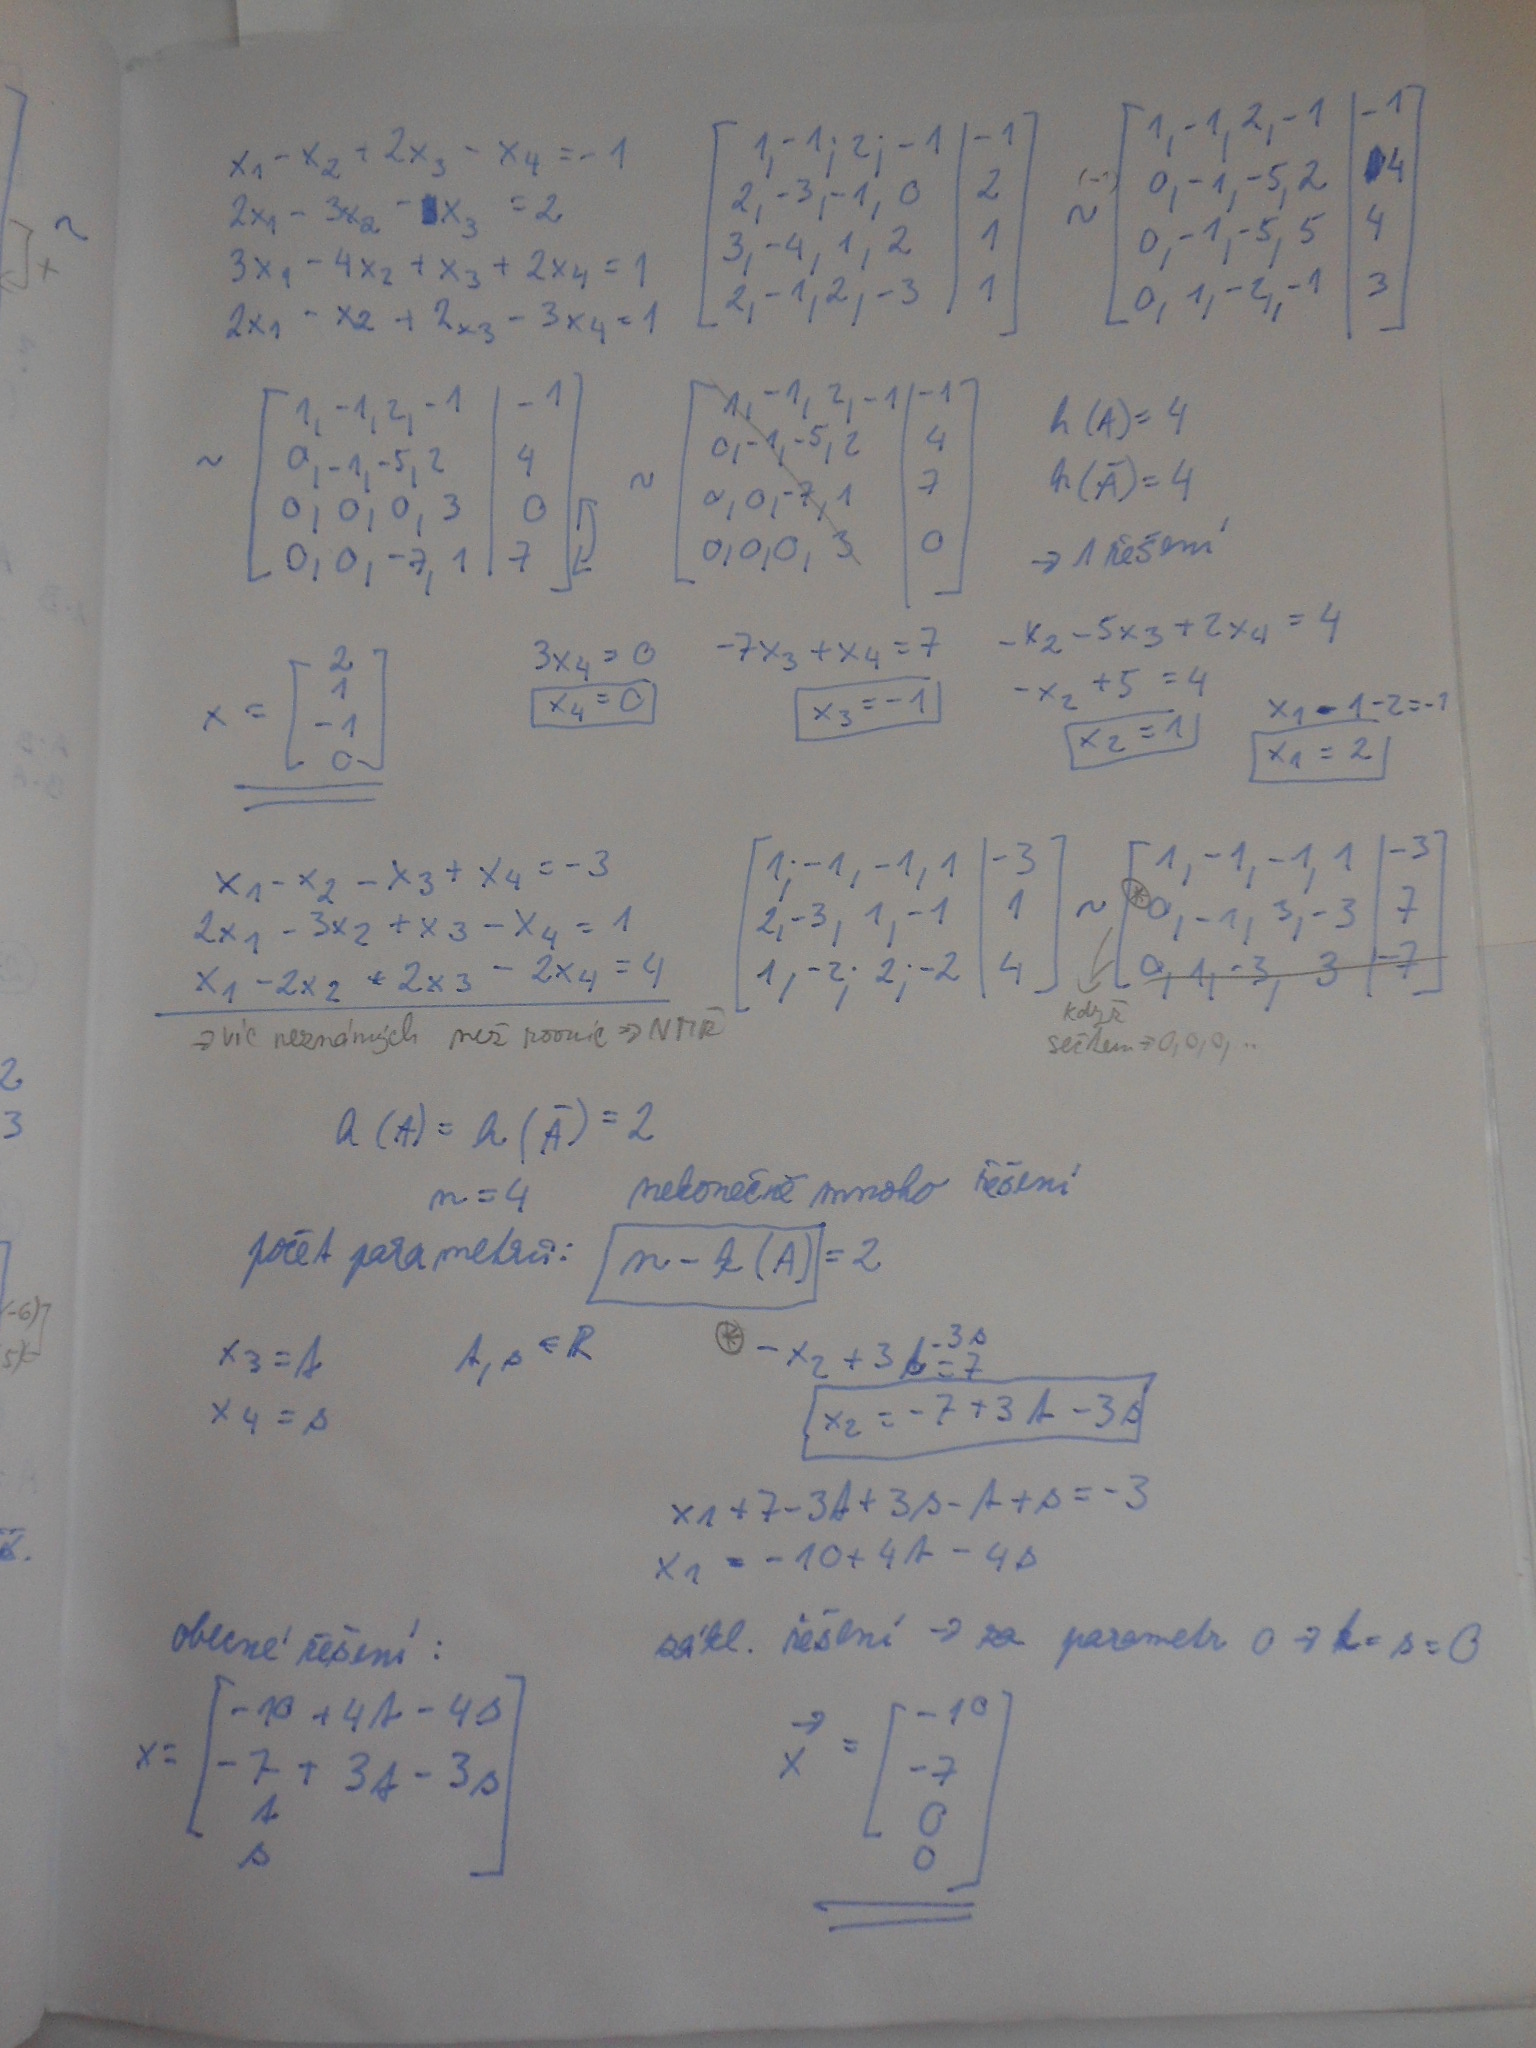 x₁ - x₂ + 2x₃ - x₄ = -1
2x₁ - 3x₂ - x₃ = 2
3x₁ - 4x₂ + x₃ + 2x₄ = 1
2x₁ - x₂ + 2x₃ - 3x₄ = 1
[ 1, -1; 2; -1 | -1
2, -3, -1, 0 | 2
3, -4, 1, 2 | 1
2, -1, 2, -3 | 1 ]
(-1) ~ [ 1, -1, 2, -1 | -1
0, -1, -5, 2 | 4
0, -1, -5, 5 | 4
0, 1, -2, -1 | 3 ]
~ [ 1, -1, 2, -1 | -1
0, -1, -5, 2 | 4
0, 0, 0, 3 | 0
0, 0, -7, 1 | 7 ]
~ [ 1, -1, 2, -1 | -1
0, -1, -5, 2 | 4
0, 0, -7, 1 | 7
0, 0, 0, 3 | 0 ]
h (A) = 4
h (Ā) = 4
→ 1 řešení
x = [ 2
1
-1
0 ]
3x₄ = 0
x₄ = 0
-7x₃ + x₄ = 7
x₃ = -1
-x₂ - 5x₃ + 2x₄ = 4
-x₂ + 5 = 4
x₂ = 1
x₁ - 1 - 2 = -1
x₁ = 2
x₁ - x₂ - x₃ + x₄ = -3
2x₁ - 3x₂ + x₃ - x₄ = 1
x₁ - 2x₂ + 2x₃ - 2x₄ = 4
→ víc neznámých než rovnic → NMŘ
[ 1; -1, -1, 1 | -3
2, -3, 1, -1 | 1
1, -2; 2; -2 | 4 ]
~ [ 1, -1, -1, 1 | -3
⊛ 0, -1, 3, -3 | 7
0, 1, -3, 3 | -7 ]
když
sečtem → 0, 0, 0, ..
h (A) = h (Ā) = 2
n = 4 nekonečně mnoho řešení
počet parametrů: n - h (A) = 2
x₃ = t t, s ∈ R
x₄ = s
⊛ -x₂ + 3t - 3s = 7
x₂ = -7 + 3t - 3s
x₁ + 7 - 3t + 3s - t + s = -3
x₁ = -10 + 4t - 4s
obecné řešení:
x = [ -10 + 4t - 4s
-7 + 3t - 3s
t
s ]
zákl. řešení → za parametr 0 → t = s = 0
x⃗ = [ -10
-7
0
0 ]
~
+
2
3
-6)
5)
ř.